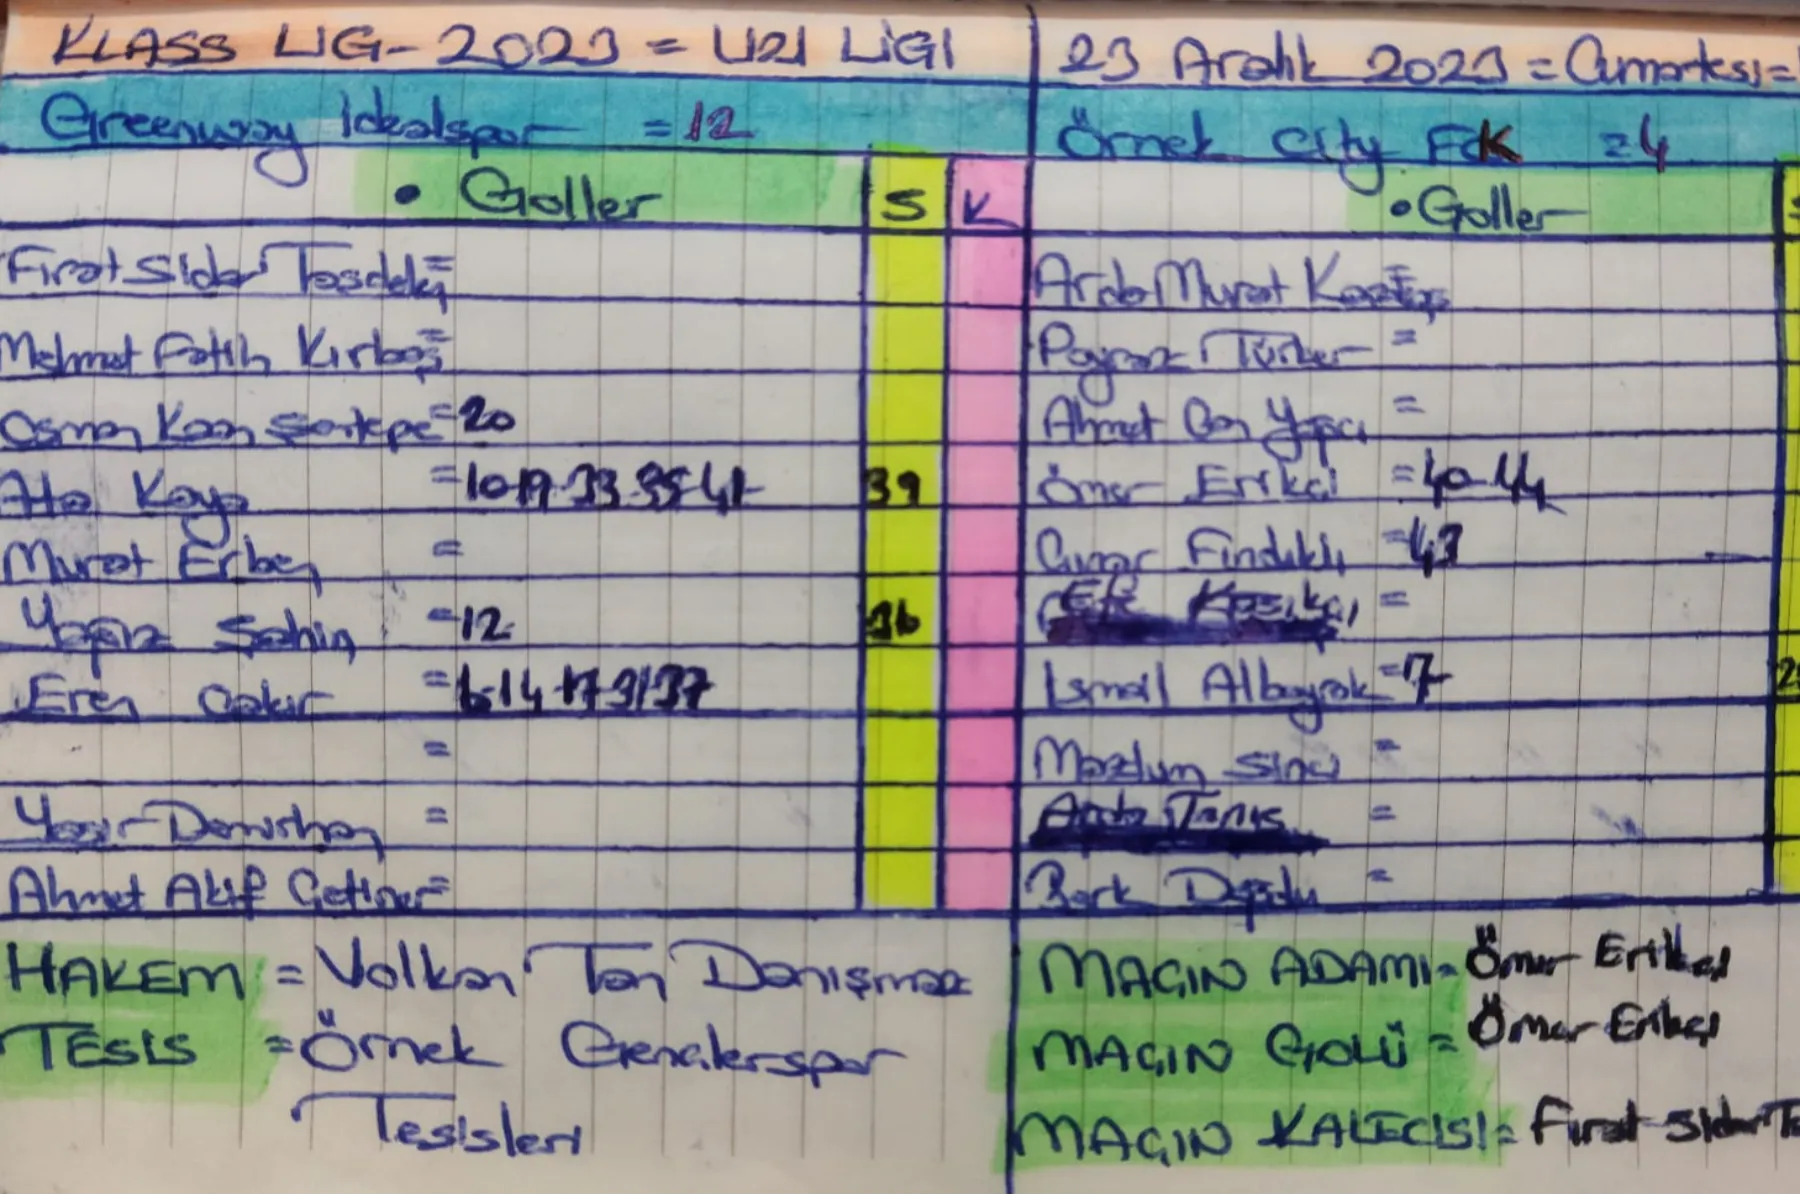 KLASS LİG-2023 = U21 LİGİ
23 Aralık 2023 = Cumartesi =
Greenway İdealspor = 12
Örnek City FK = 4
• Goller S K
• Goller
Fırat Sidar Taşdelen =
Arda Murat =
Mehmet Fatih Kırbaş =
Poyraz Türker =
Osman Kaan Sarıtepe = 20
Ahmet Can Yapıcı =
Ata Kaya = 10-19-33-35-41 39
Ömer Erikçi = 40-44
Murat Erbey =
Çınar Fındıklı = 43
Yağız Şahin = 12 36
Efe Kaşıkçı =
Eren Çakır = 6-14-17-31-37
İsmail Albayrak = 7
=
Mazlum =
Yasir Demirhan =
Arda Tanış =
Ahmet Akif Çetiner =
Berk =
HAKEM = Volkan Tan Danışmaz
TESİS = Örnek Gençlerspor
Tesisleri
MAÇIN ADAMI = Ömer Erikçi
MAÇIN GOLÜ = Ömer Erikçi
MAÇIN KALECİSİ = Fırat Sidar